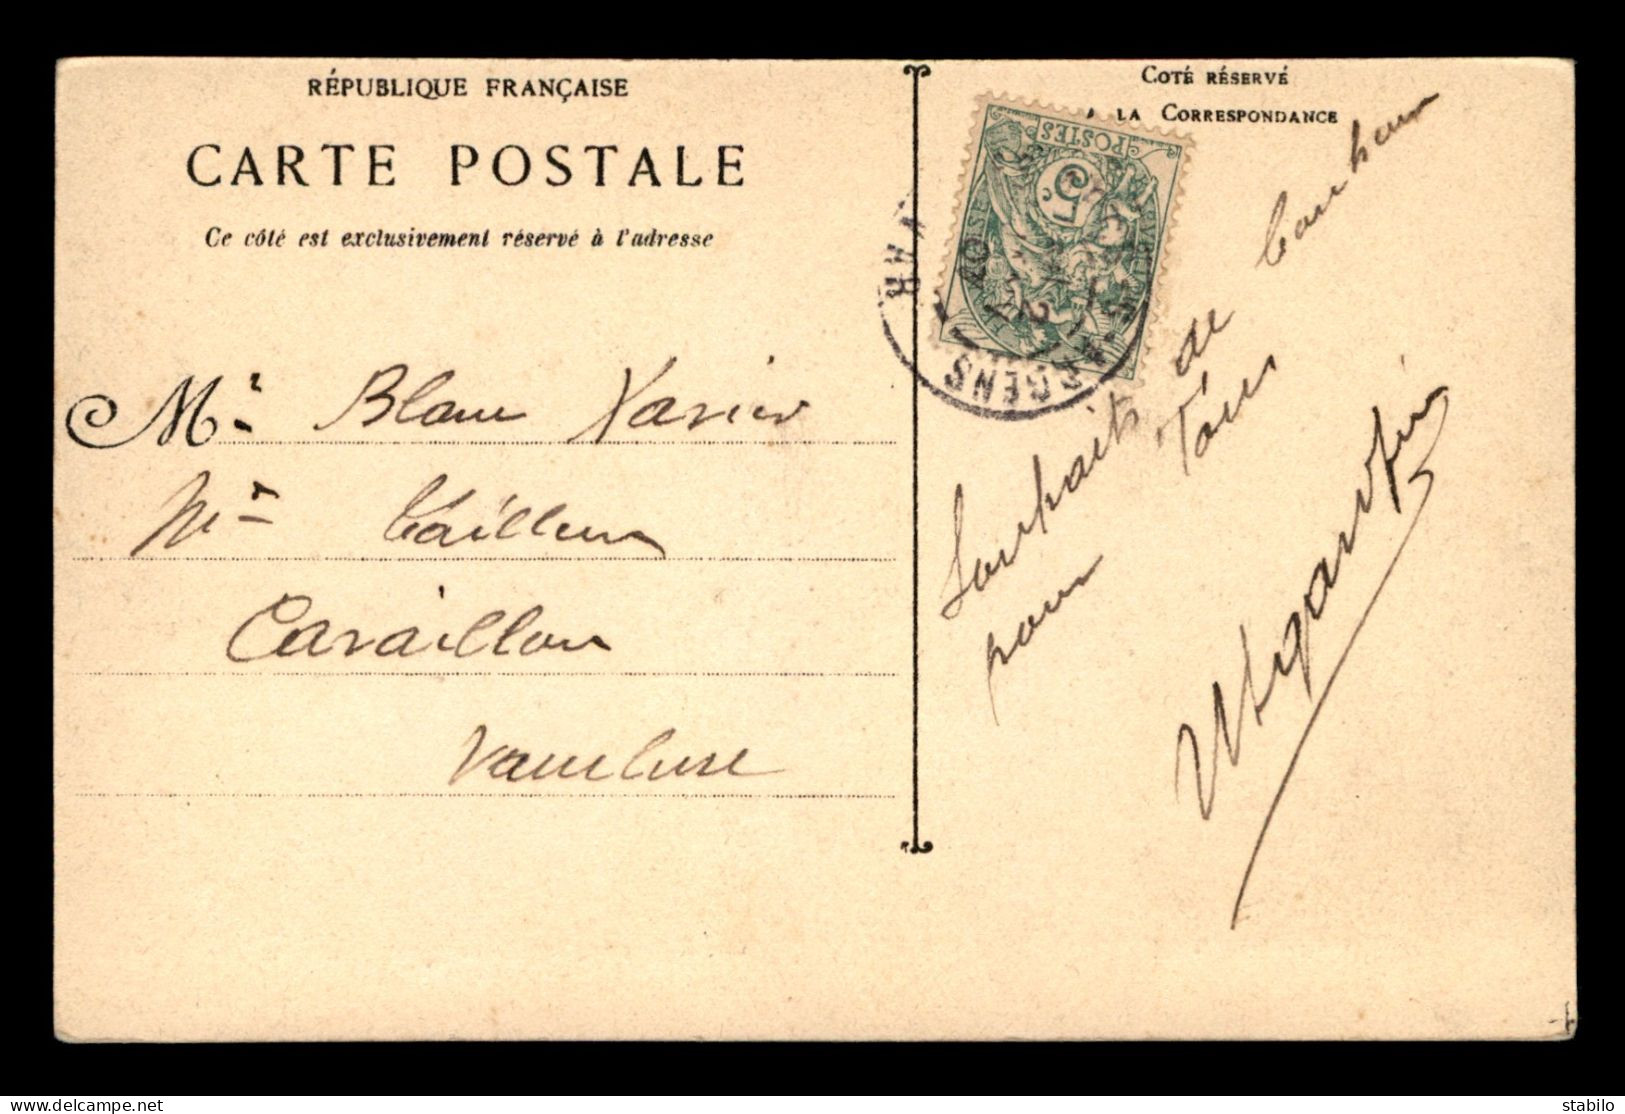 RÉPUBLIQUE FRANÇAISE
CARTE POSTALE
Ce côté est exclusivement réservé à l'adresse
Mr Blanc Xavier
Md Tailleur
Cavaillon
Vaucluse
COTÉ RÉSERVÉ
LA CORRESPONDANCE
POSTES
5c
VAR
Souhaits de bonheur
pour Tous